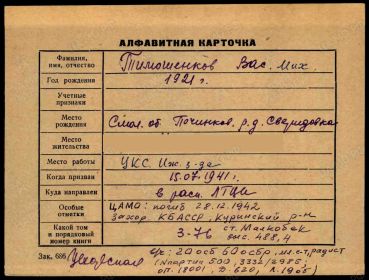 АЛФАВИТНАЯ КАРТОЧКА
Фамилия, имя, отчество Тимошенков Вас. Мих.
Год рождения 1921 г.
Учетные признаки
Место рождения Смол. об Починков. р. д. Свиридовка
Место жительства
Место работы УКС. Иж. з-да
Когда призван 15.07.1941 г.
Куда направлен в расп. ЛТЦа
Особые отметки ЦАМО: погиб 28.12.1942
захор. КБАССР, Куринский р-н
Какой том и порядковый номер книги 3-76 ст. Малкобек
выс. 488,4
Зак. 686 в/ч: 2 осб 60 осбр, мл. с-т, радист